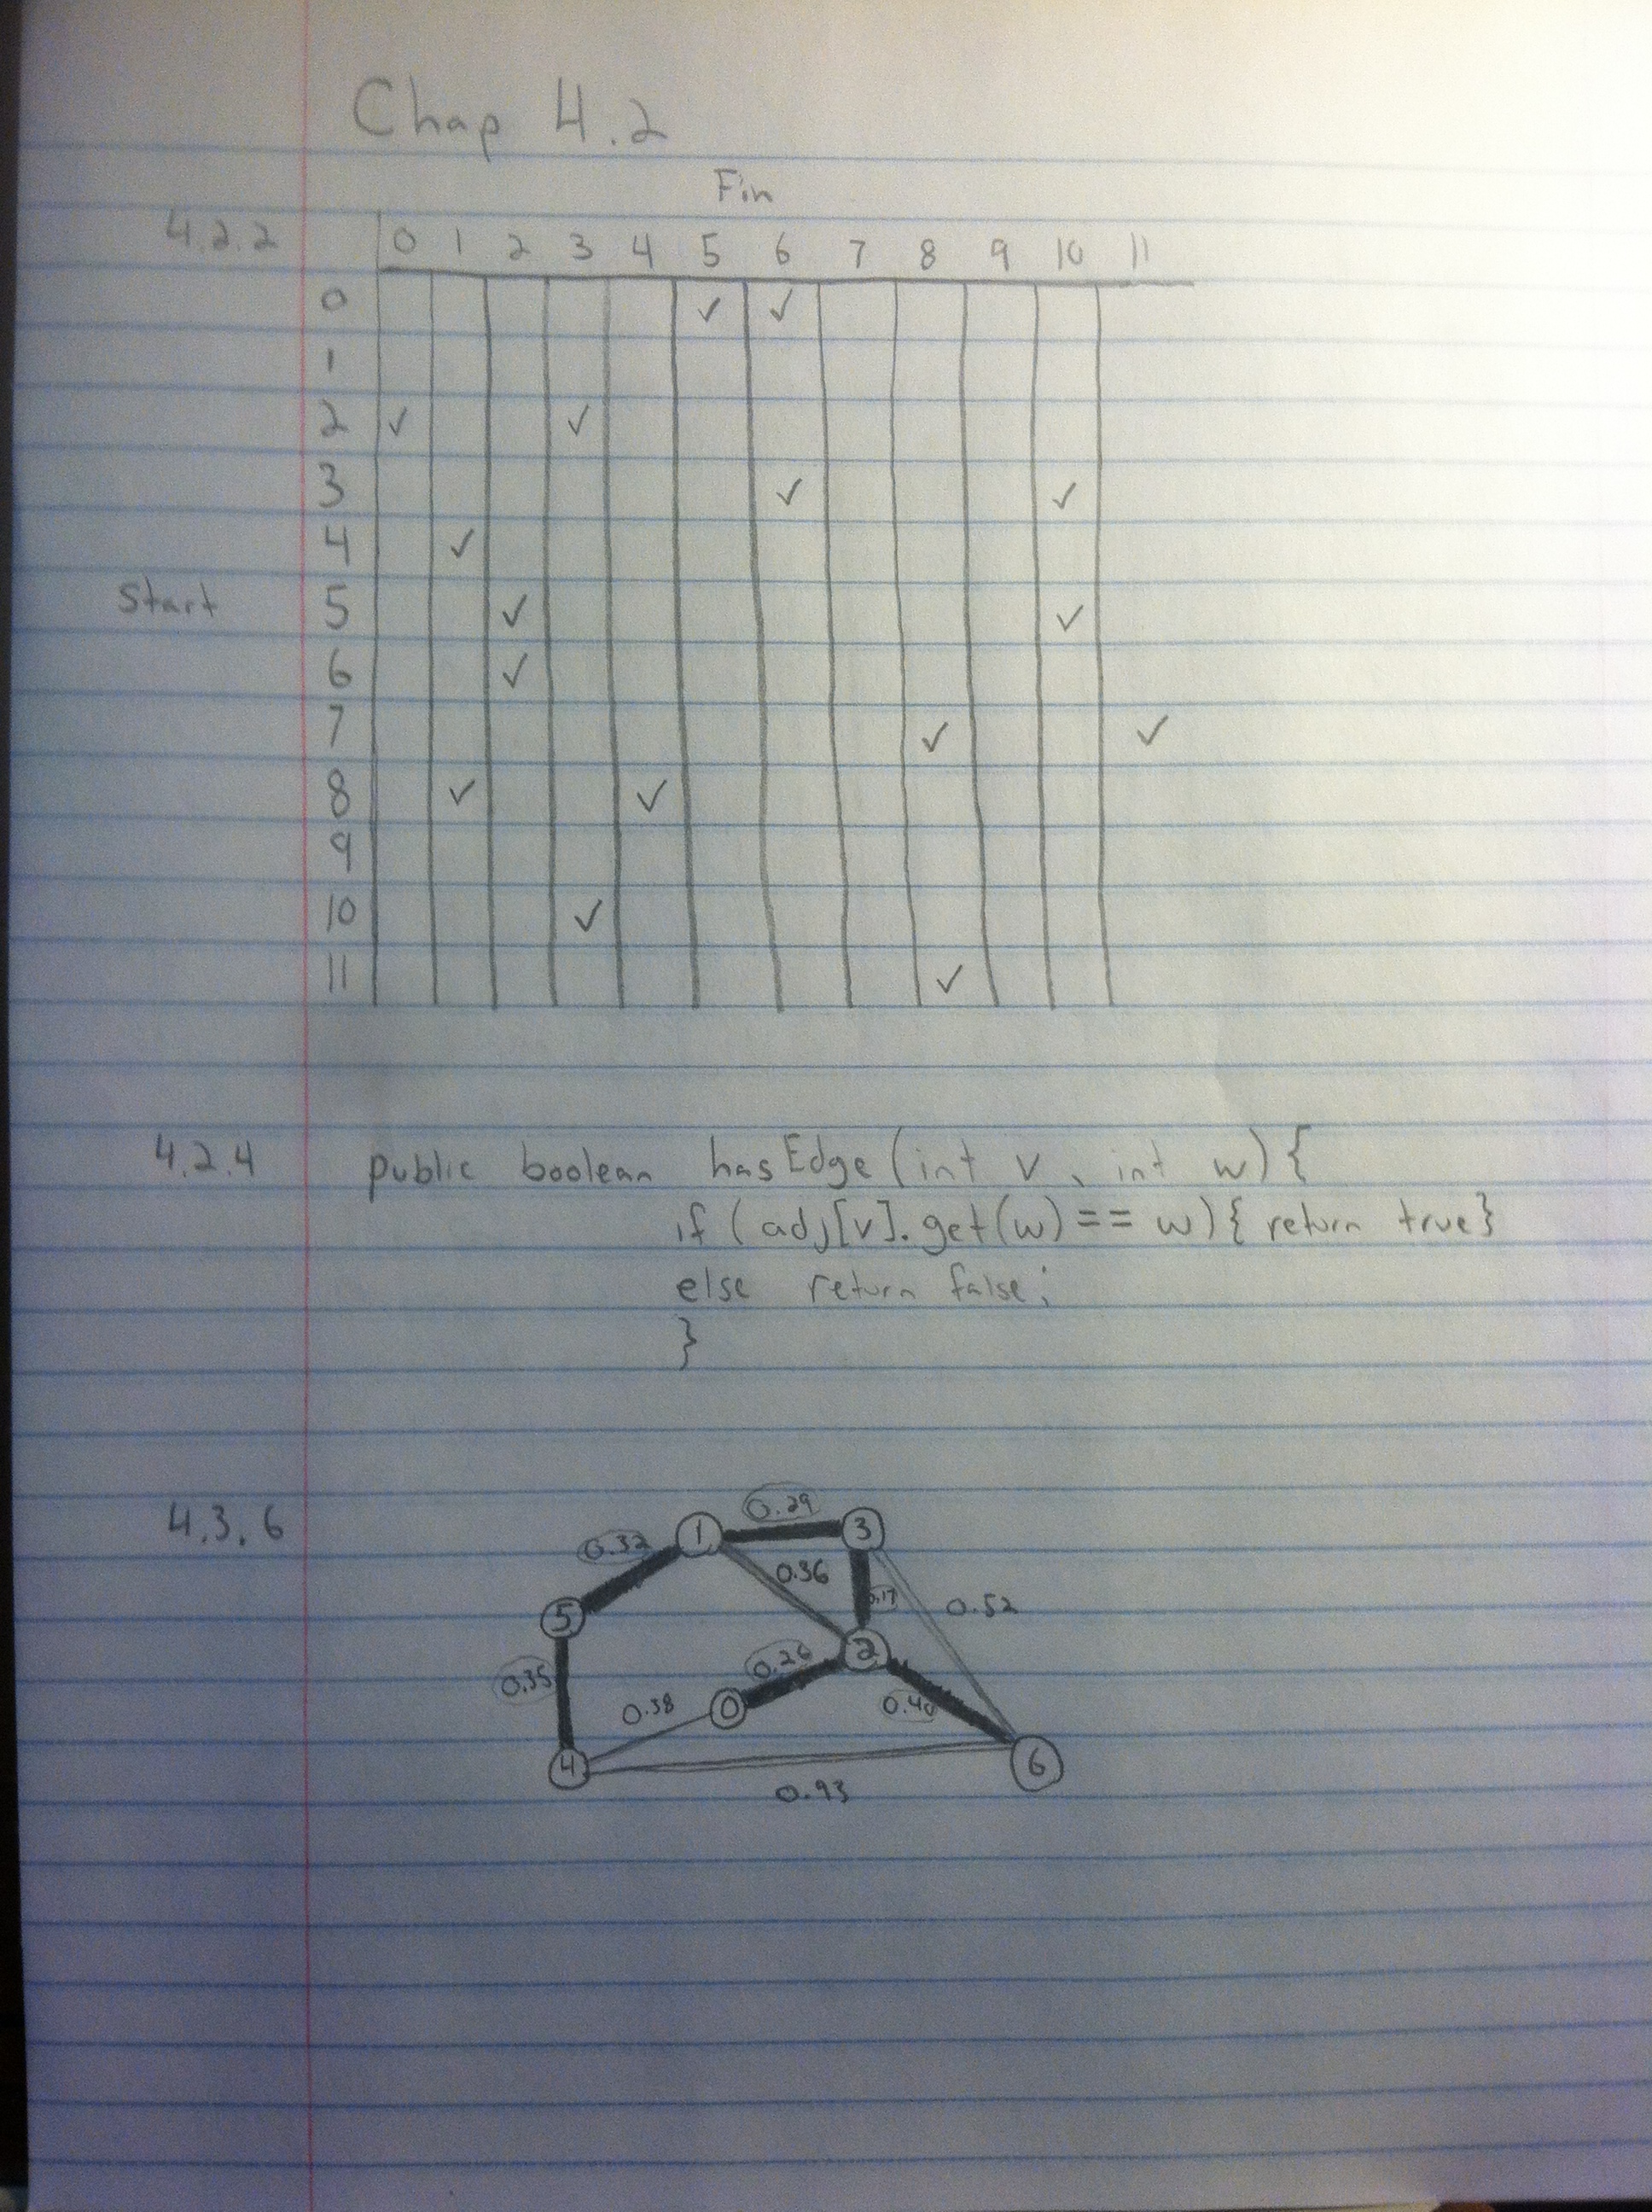 Chap 4.2
Fin
4.2.2 0 1 2 3 4 5 6 7 8 9 10 11
0 ✓ ✓
1
2 ✓ ✓
3 ✓ ✓
4 ✓
Start 5 ✓ ✓
6 ✓
7 ✓ ✓
8 ✓ ✓
9
10 ✓
11 ✓
4.2.4 public boolean hasEdge(int v, int w){
if (adj[v].get(w) == w){ return true}
else return false;
}
4.3.6
0.29
1 3
0.32 0.36
5 0.17 0.52
2
0.26
0.35
0.38 0 0.40
4 6
0.93